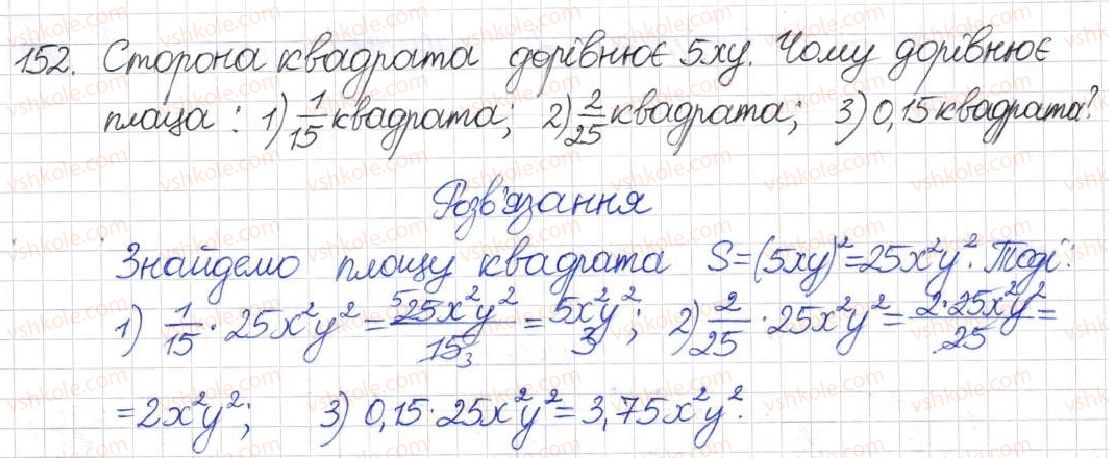 152. Сторона квадрата дорівнює 5xy. Чому дорівнює
площа: 1) 1/15 квадрата; 2) 2/25 квадрата; 3) 0,15 квадрата?
Розв'язання
Знайдемо площу квадрата S=(5xy)²=25x²y². Тоді:
1) 1/15 · 25x²y² = ⁵25x²y²/15₃ = 5x²y²/3; 2) 2/25 · 25x²y² = 2·25x²y²/25 =
=2x²y²; 3) 0,15·25x²y²=3,75x²y².
vshkole.com